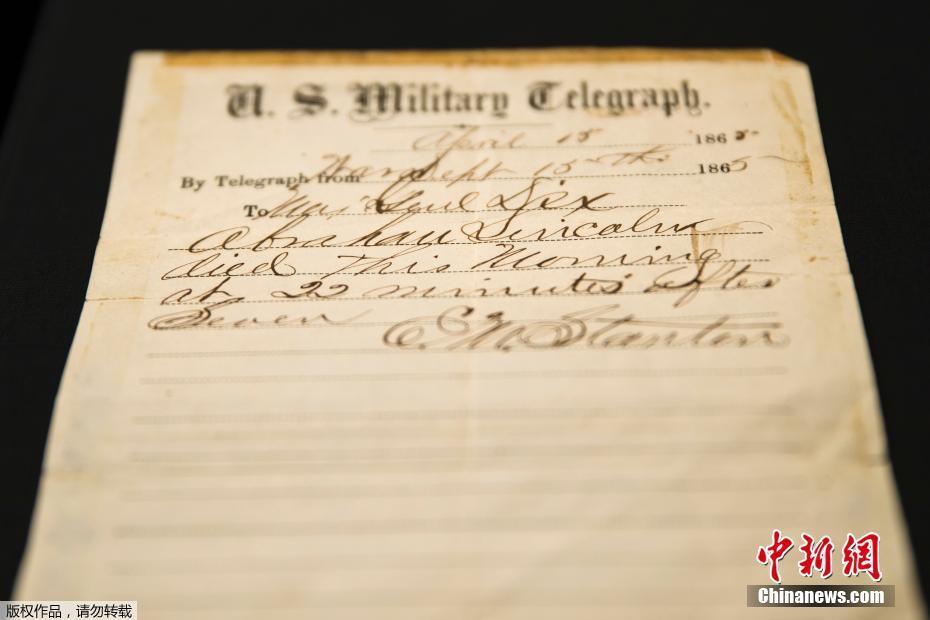 U. S. Military Telegraph.
April 15 1865
By Telegraph from War Dept 15th 1865
To Maj Genl Dix
Abraham Lincoln
died This Morning
at 22 minutes after
Seven E. M. Stanton
中新网
Chinanews.com
版权作品,请勿转载